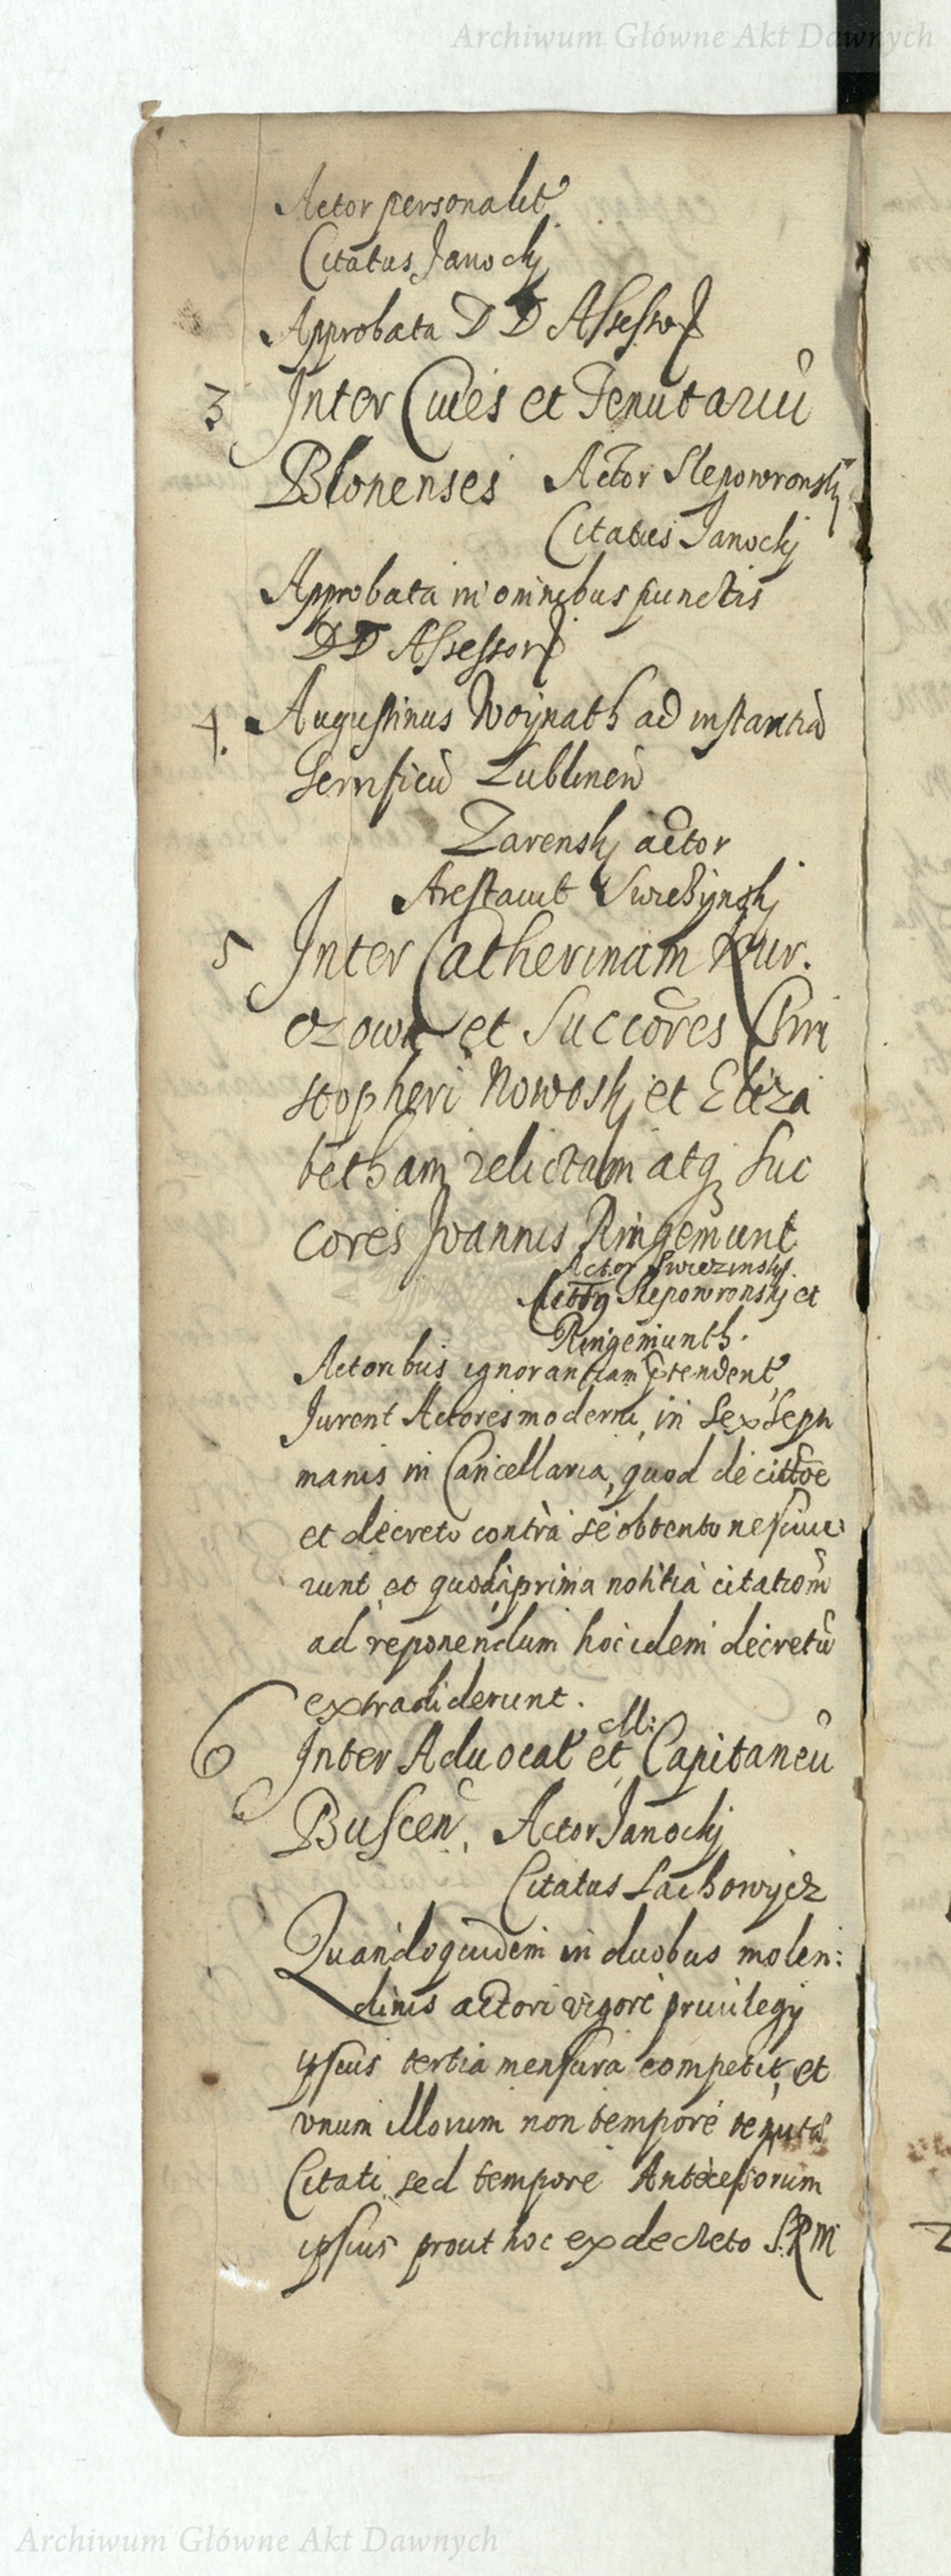 Archiwum Główne Akt Dawnych
Actor personalit
Citatus Janockj
Approbata D D Assessor
3 Inter Ciues et Tenutariũ
Blonenses Actor Slepowronskj
Citatus Janockj
Approbata in omnibus punctis
DD Assessor
4. Augustinus Woynath ad instantiã
Lublinen
Zarenskj actor
Arestauit
5 Inter Catherinam Kur.
ozowa et Succores Chri
stopheri Nowoskj et Eliza
betham relictam atq Suc
cores Joannis Ringemunt
Actor Swiezinskj.
Slepowronskj et
Ringemunth.
Actoribus ignorantiam ptendent
Jurent Actores moderni, in Sex Septi
manis in Cancellaria, quod de cittõe
et decreto contra se obtento nesciue:
runt, et quod à prima notitia citationẽ
ad reponendum hoc idem decretũ
extradiderunt.
6 Inter Aduocat et M: Capitaneũ
Buscen, Actor Janockj
Citatus Lachowycz
Quandoquidem in duobus molen:
dinis actori vigore priuilegij
ipsius tertia mensura competit, et
vnum illorum non tempore
Citati sed tempore Antecessorum
ipsius prout hoc ex decreto S.R.M
Archiwum Główne Akt Dawnych